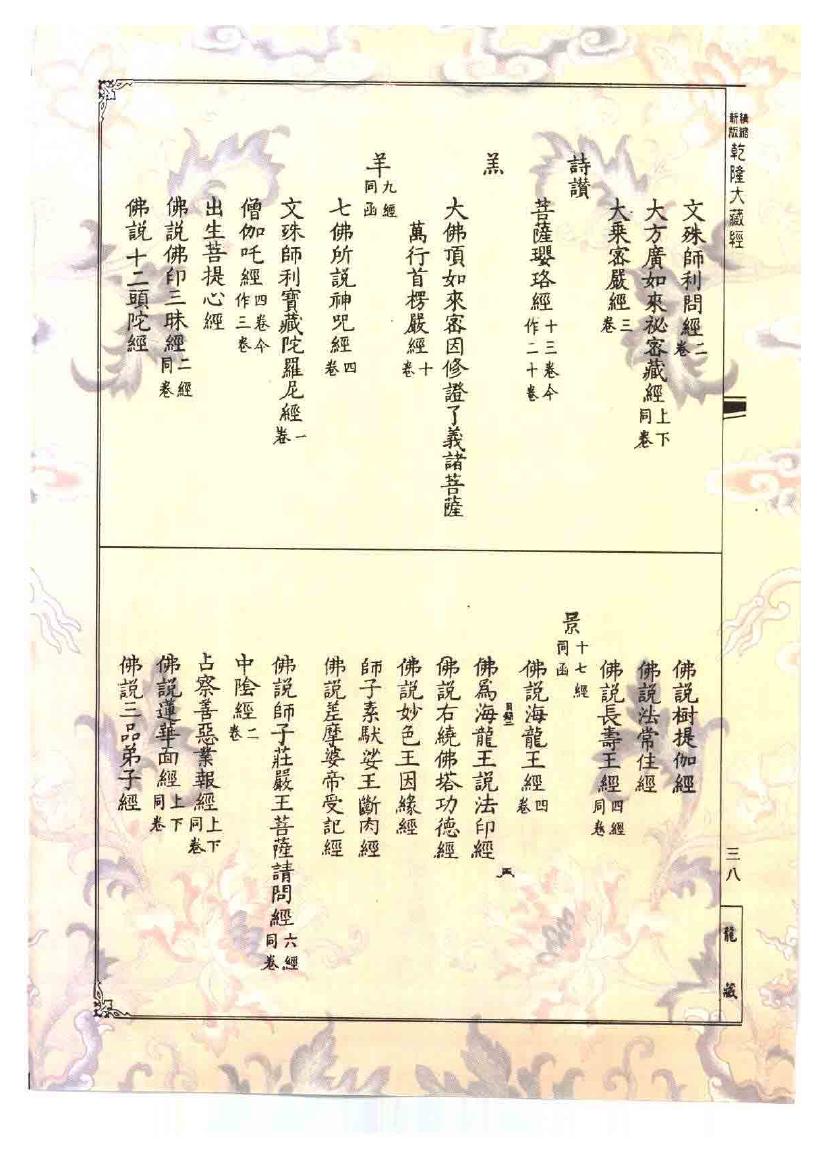 新版
縮
乾隆大藏經
三八
龍藏
文殊師利問經二卷
大方廣如來祕密藏經上下同卷
大乘密嚴經三卷
詩讚
菩薩瓔珞經十三卷今作二十卷
羔
大佛頂如來密因修證了義諸菩薩
萬行首楞嚴經十卷
羊九經同函
七佛所說神咒經四卷
文殊師利寶藏陀羅尼經一卷
僧伽吒經四卷今作三卷
出生菩提心經
佛說佛印三昧經二經同卷
佛說十二頭陀經
佛說樹提伽經
佛說法常住經
佛說長壽王經四經同卷
景十七經同函
佛說海龍王經四卷
目錄三
佛爲海龍王說法印經
佛說右繞佛塔功德經
佛說妙色王因緣經
師子素馱娑王斷肉經
佛說差摩婆帝受記經
佛說師子莊嚴王菩薩請問經六經同卷
中陰經二卷
占察善惡業報經上下同卷
佛說蓮華面經上下同卷
佛說三品弟子經